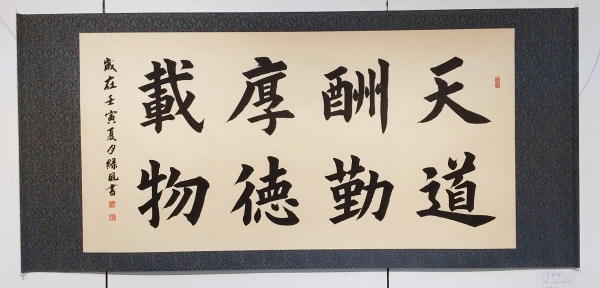 天道
酬勤
厚德
載物
歲在壬寅夏夕緑風書